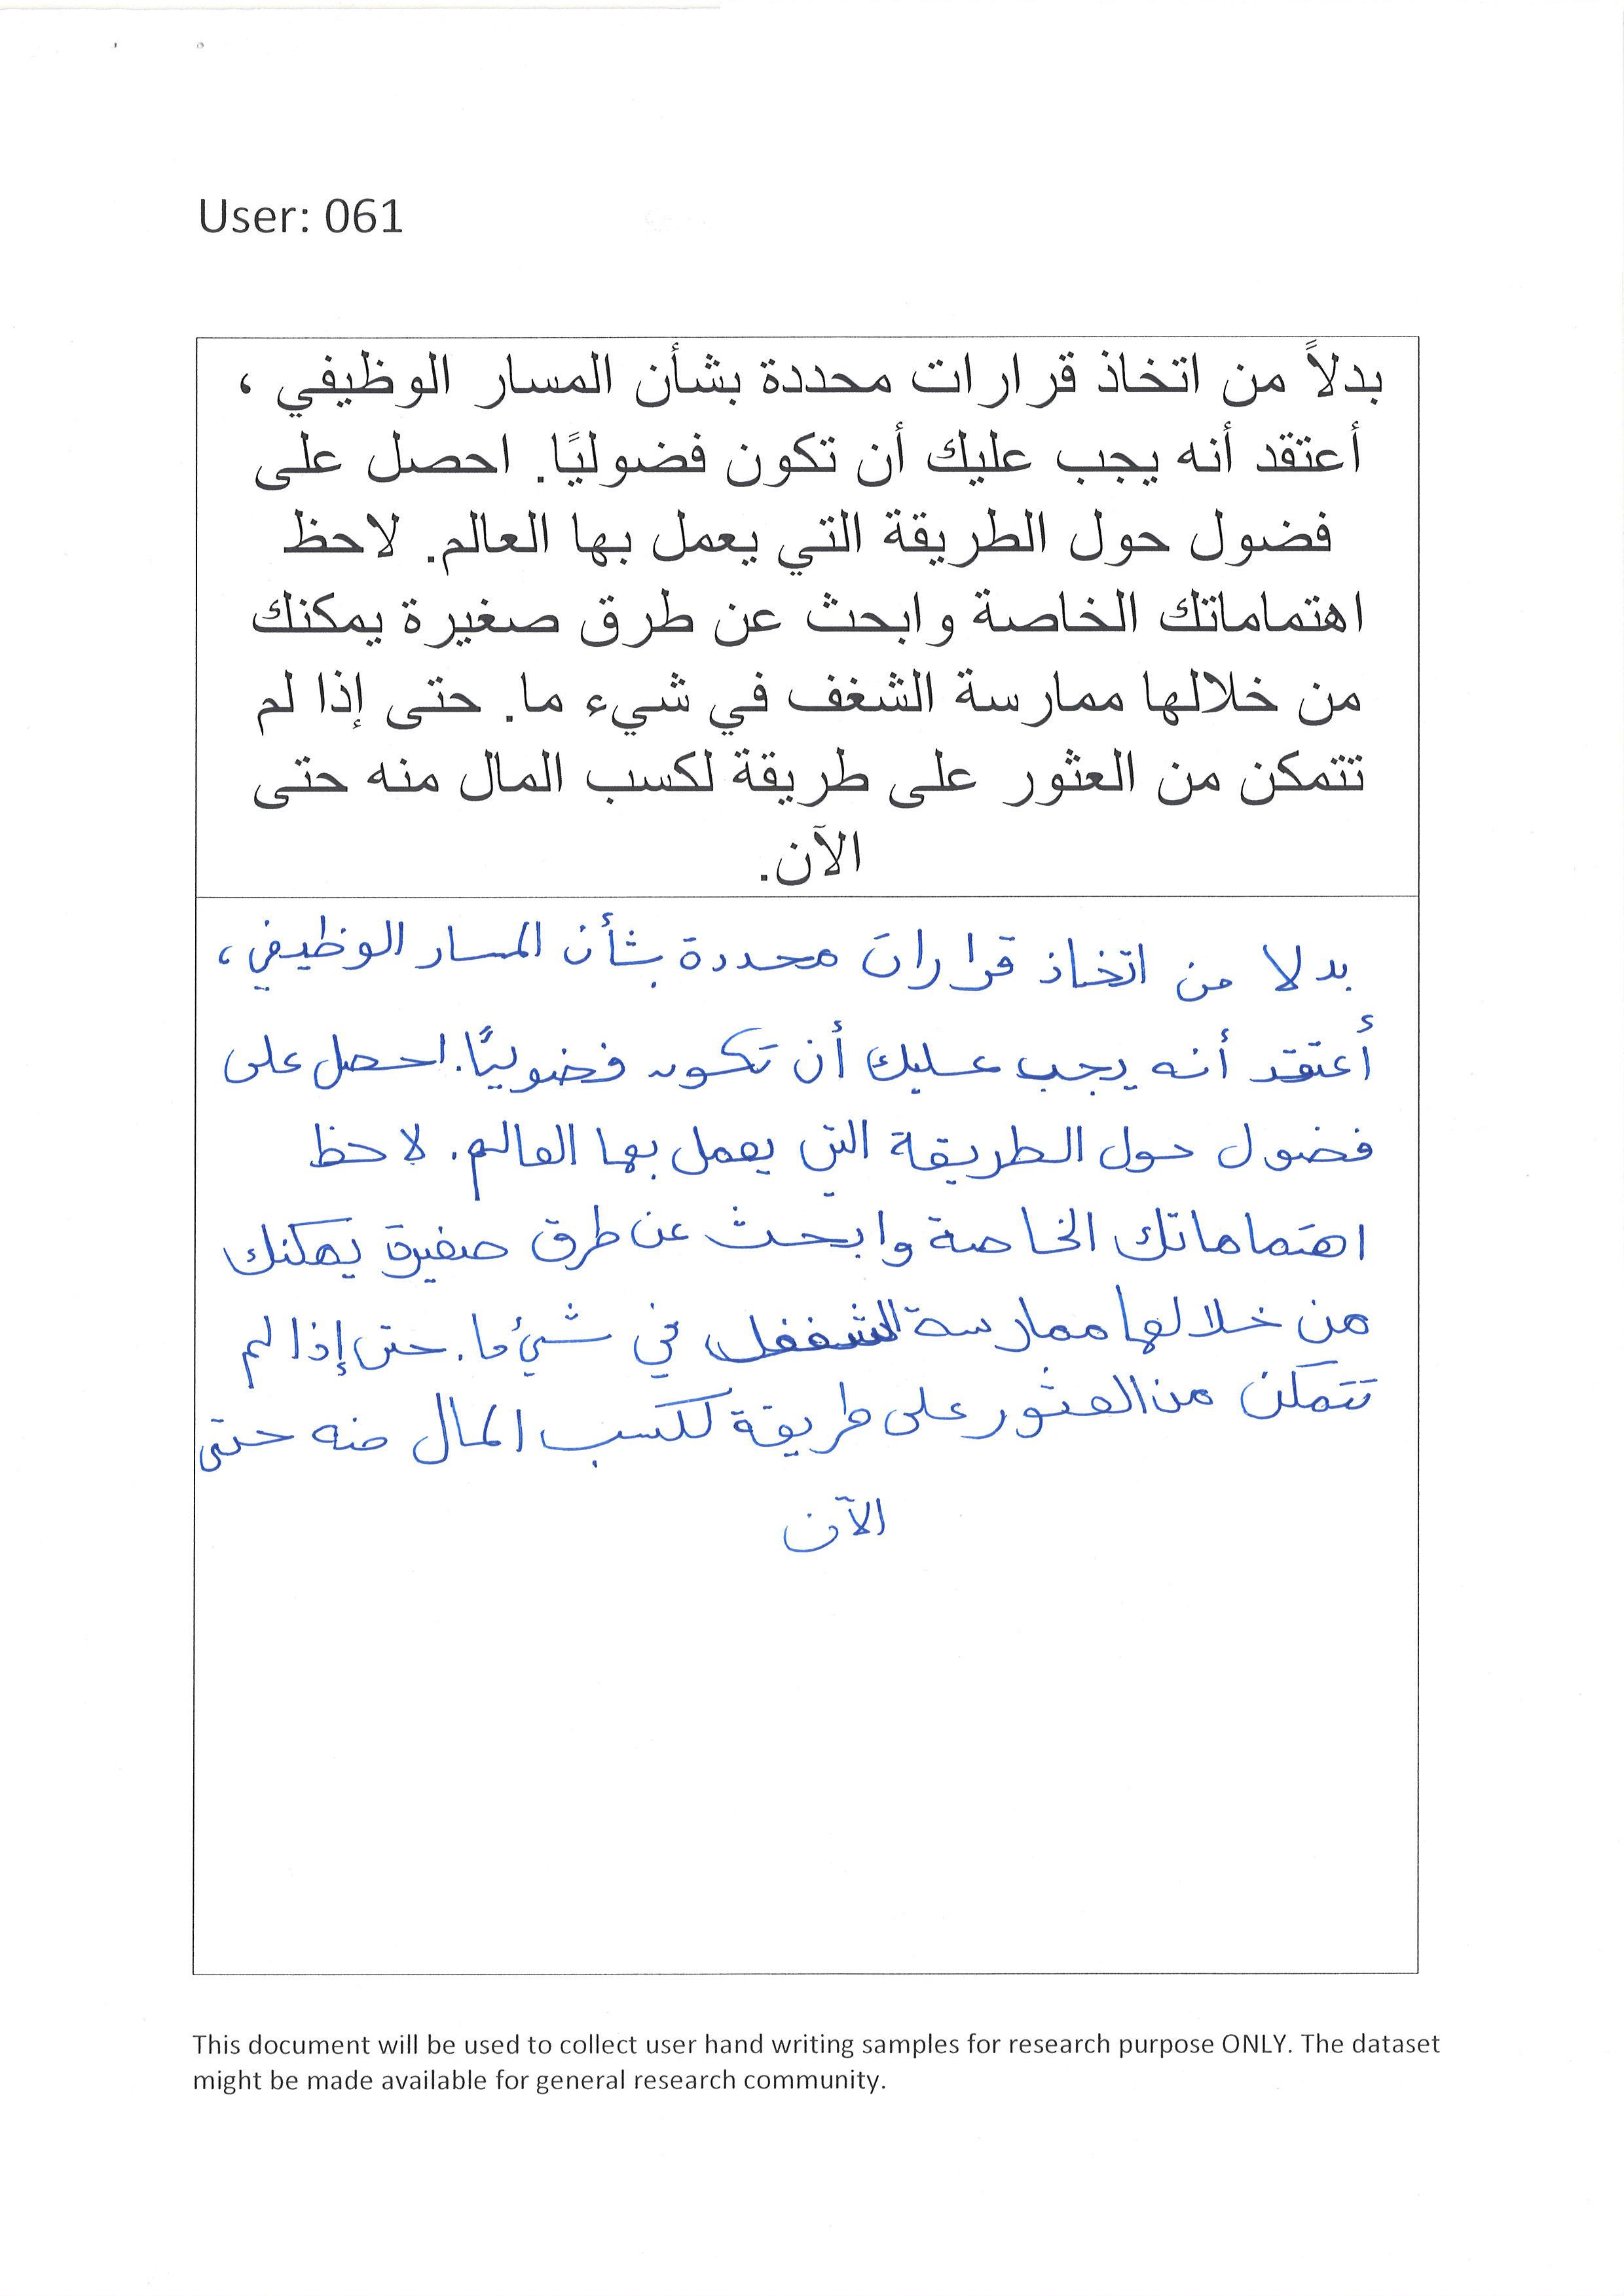 User: 061
بدلاً من اتخاذ قرارات محددة بشأن المسار الوظيفي ،
أعتقد أنه يجب عليك أن تكون فضوليًا. احصل على
فضول حول الطريقة التي يعمل بها العالم. لاحظ
اهتماماتك الخاصة وابحث عن طرق صغيرة يمكنك
من خلالها ممارسة الشغف في شيء ما. حتى إذا لم
تتمكن من العثور على طريقة لكسب المال منه حتى
الآن.
بدلا من اتخاذ قرارات محددة بشأن المسار الوظيفي ،
أعتقد أنه يجب عليك أن تكون فضوليًا. احصل على
فضول حول الطريقة التي يعمل بها العالم. لاحظ
اهتماماتك الخاصة وابحث عن طرق صغيرة يمكنك
من خلالها ممارسة في شيء ما. حتى إذا لم
تتمكن من العثور على طريقة لكسب المال منه حتى
الآن
This document will be used to collect user hand writing samples for research purpose ONLY. The dataset
might be made available for general research community.